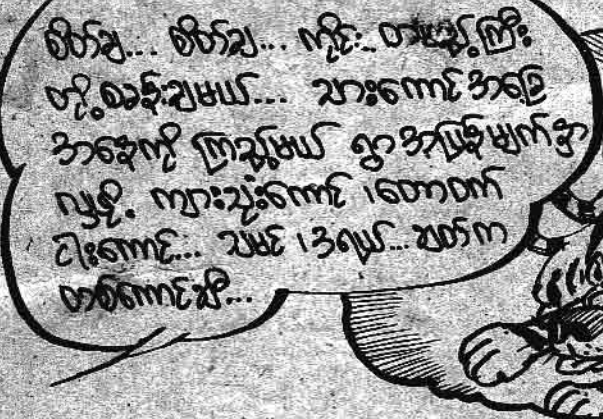 စိတ်ချ... စိတ်ချ... ကိုင်း... တပည့်ကြီး
တို့ စခန်းချမယ်... သားကောင် အခြေ
အနေကို ကြည့်မယ် ရွာ အပြန် မျက်နှာ
လှဖို့ ကျားသုံးကောင် ၊ တောဝက်
ငါးကောင်... သမင် ၊ ဒရယ်... ဆတ်က
တစ်ကောင်စီ...